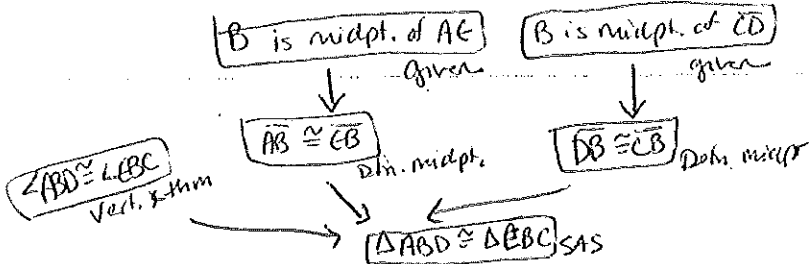 B is midpt. of AE
given
B is midpt. of CD
given
AB ≅ EB
Defn. midpt.
DB ≅ CB
Defn. midpt
∠ABD ≅ ∠EBC
Vert. ∡ thm
△ABD ≅ △EBC SAS